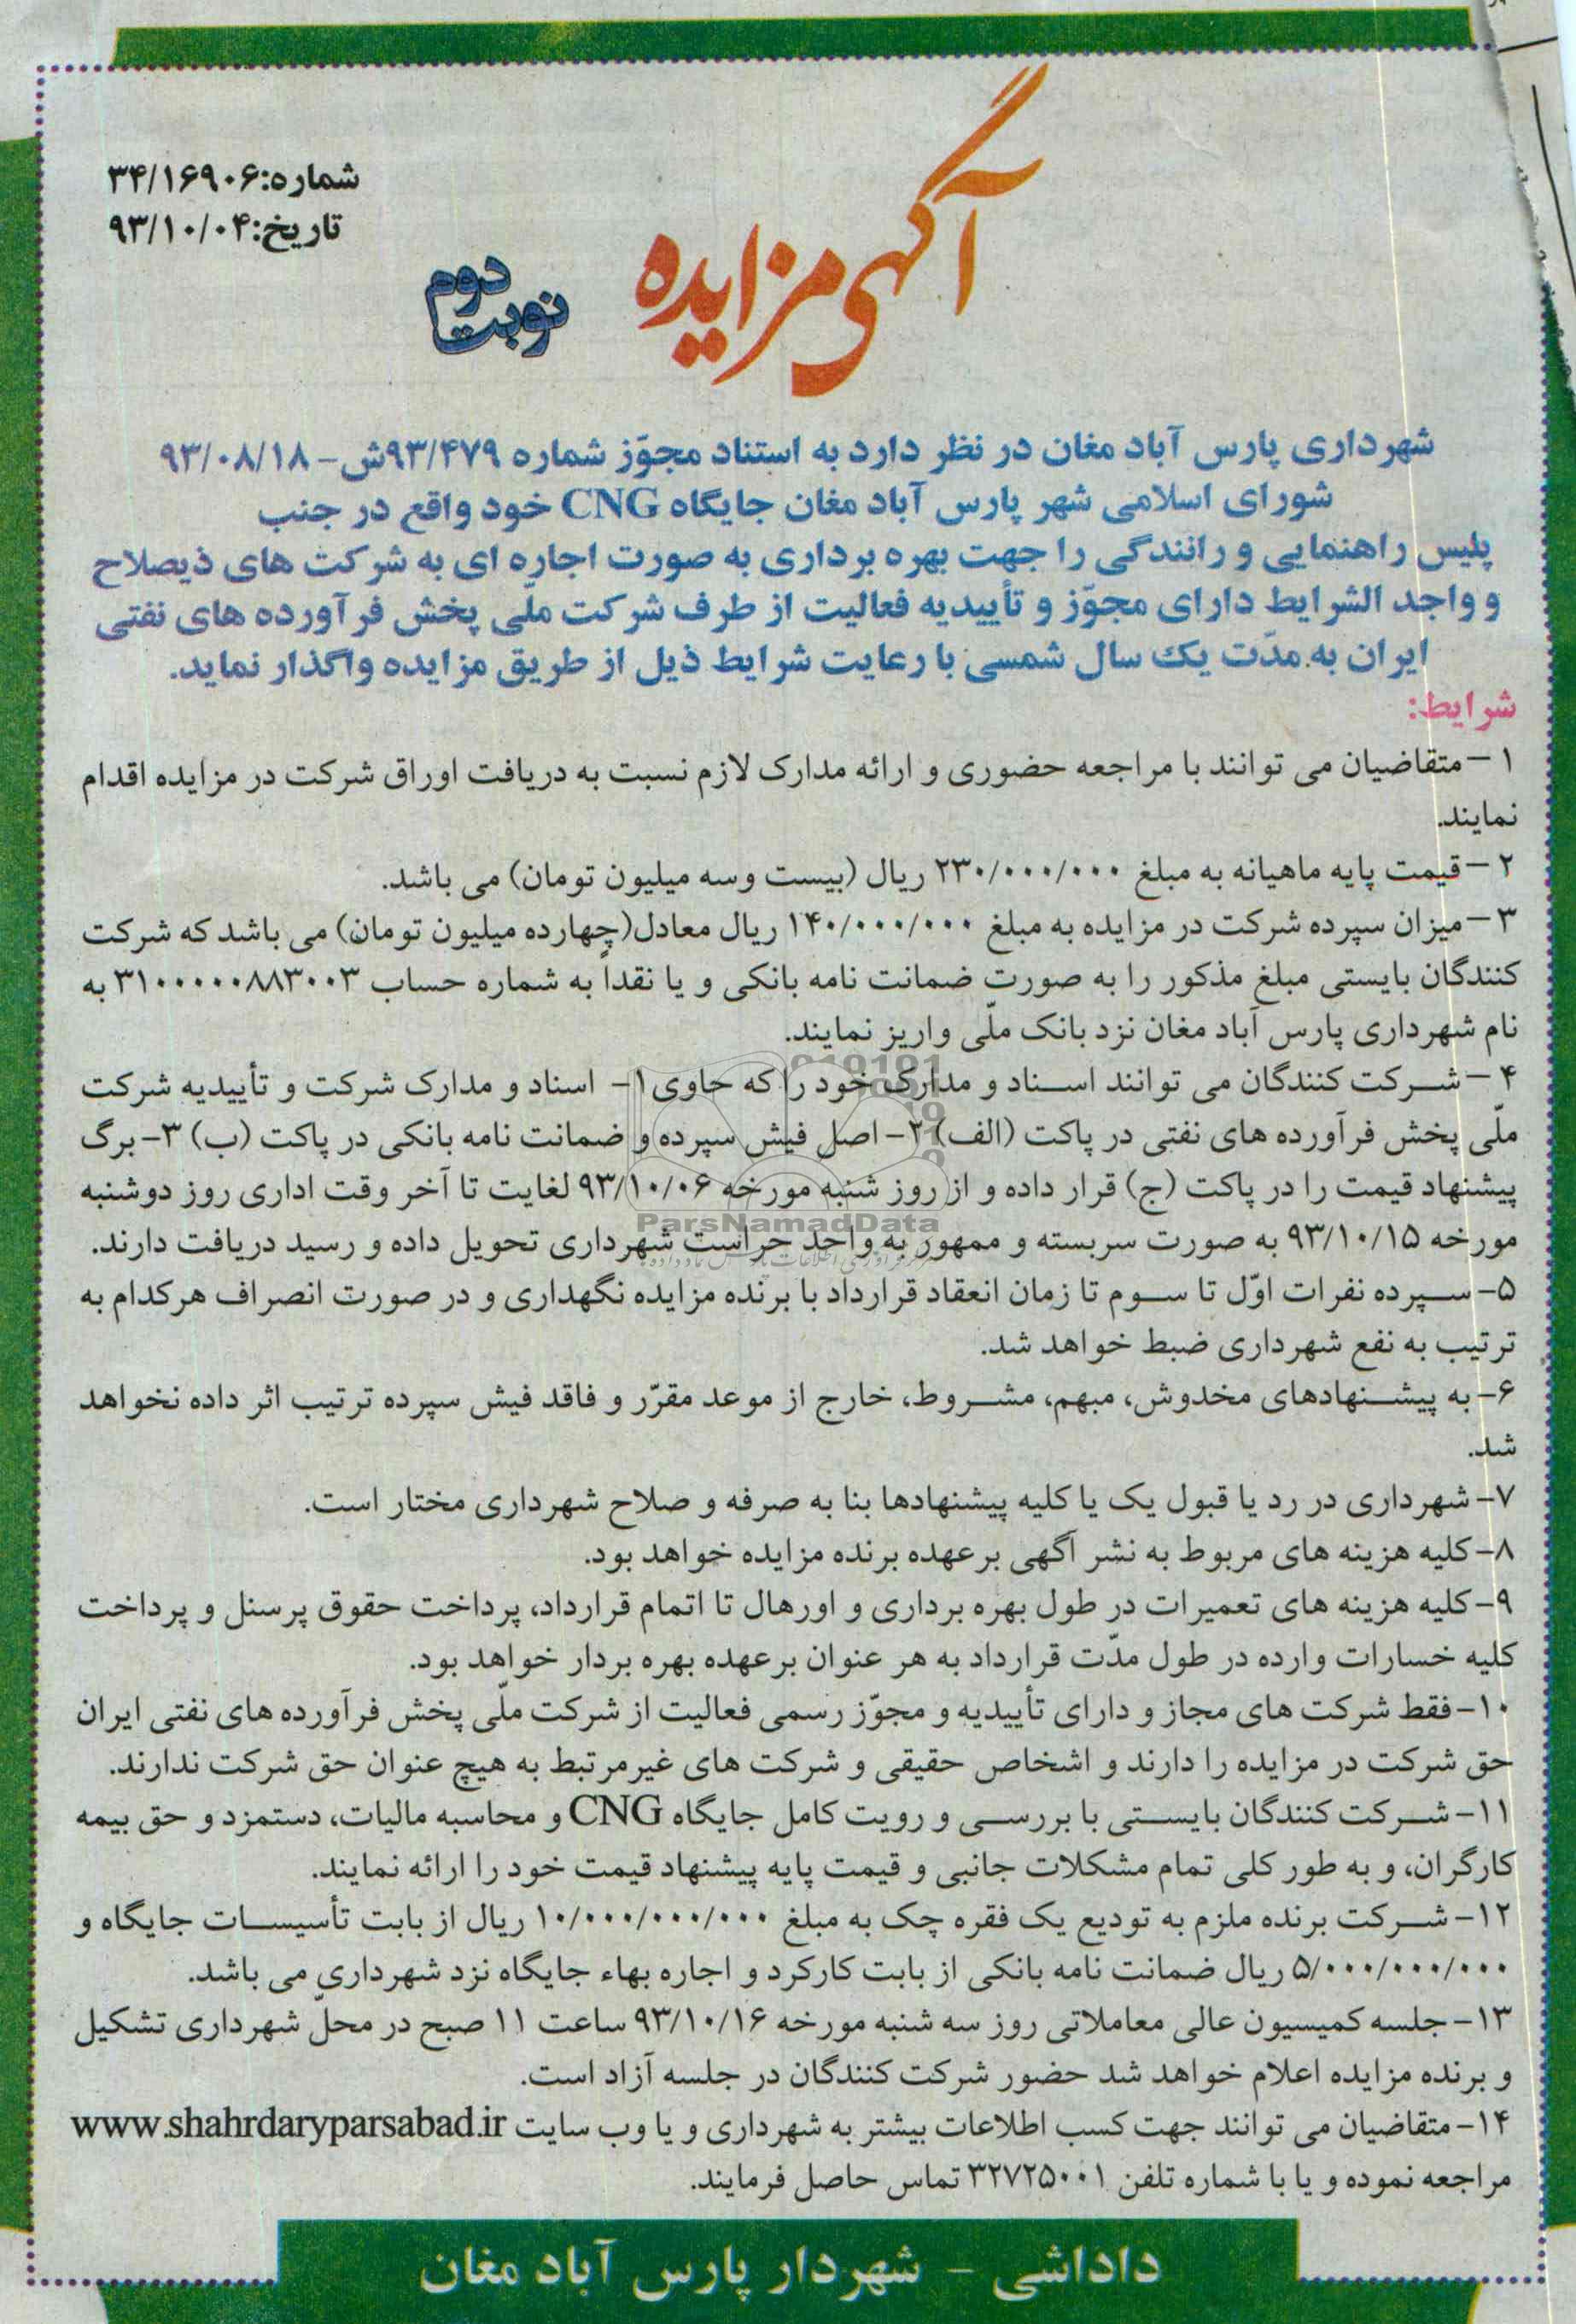 شماره:۳۴/۱۶۹۰۶
تاریخ:۹۳/۱۰/۰۴
آگهی مزایده
نوبت دوم
شهرداری پارس آباد مغان در نظر دارد به استناد مجوّز شماره ۹۳/۴۷۹ش- ۹۳/۰۸/۱۸
شورای اسلامی شهر پارس آباد مغان جایگاه CNG خود واقع در جنب
پلیس راهنمایی و رانندگی را جهت بهره برداری به صورت اجاره ای به شرکت های ذیصلاح
و واجد الشرایط دارای مجوّز و تأییدیه فعالیت از طرف شرکت ملّی پخش فرآورده های نفتی
ایران به مدّت یک سال شمسی با رعایت شرایط ذیل از طریق مزایده واگذار نماید.
شرایط:
۱ -متقاضیان می توانند با مراجعه حضوری و ارائه مدارک لازم نسبت به دریافت اوراق شرکت در مزایده اقدام
نمایند.
۲ -قیمت پایه ماهیانه به مبلغ ۲۳۰/۰۰۰/۰۰۰ ریال (بیست وسه میلیون تومان) می باشد.
۳ -میزان سپرده شرکت در مزایده به مبلغ ۱۴۰/۰۰۰/۰۰۰ ریال معادل(چهارده میلیون تومان) می باشد که شرکت
کنندگان بایستی مبلغ مذکور را به صورت ضمانت نامه بانکی و یا نقداً به شماره حساب ۳۱۰۰۰۰۰۸۸۳۰۰۳ به
نام شهرداری پارس آباد مغان نزد بانک ملّی واریز نمایند.
۴ -شرکت کنندگان می توانند اسناد و مدارک خود را که حاوی۱- اسناد و مدارک شرکت و تأییدیه شرکت
ملّی پخش فرآورده های نفتی در پاکت (الف) ۲-اصل فیش سپرده و ضمانت نامه بانکی در پاکت (ب) ۳-برگ
پیشنهاد قیمت را در پاکت (ج) قرار داده و از روز شنبه مورخه ۹۳/۱۰/۰۶ لغایت تا آخر وقت اداری روز دوشنبه
مورخه ۹۳/۱۰/۱۵ به صورت سربسته و ممهور به واحد حراست شهرداری تحویل داده و رسید دریافت دارند.
ParsNamadData
۵-سپرده نفرات اوّل تا سوم تا زمان انعقاد قرارداد با برنده مزایده نگهداری و در صورت انصراف هرکدام به
ترتیب به نفع شهرداری ضبط خواهد شد.
۶- به پیشنهادهای مخدوش، مبهم، مشروط، خارج از موعد مقرّر و فاقد فیش سپرده ترتیب اثر داده نخواهد
شد.
۷- شهرداری در رد یا قبول یک یا کلیه پیشنهادها بنا به صرفه و صلاح شهرداری مختار است.
۸-کلیه هزینه های مربوط به نشر آگهی برعهده برنده مزایده خواهد بود.
۹-کلیه هزینه های تعمیرات در طول بهره برداری و اورهال تا اتمام قرارداد، پرداخت حقوق پرسنل و پرداخت
کلیه خسارات وارده در طول مدّت قرارداد به هر عنوان برعهده بهره بردار خواهد بود.
۱۰-فقط شرکت های مجاز و دارای تأییدیه و مجوّز رسمی فعالیت از شرکت ملّی پخش فرآورده های نفتی ایران
حق شرکت در مزایده را دارند و اشخاص حقیقی و شرکت های غیرمرتبط به هیچ عنوان حق شرکت ندارند.
۱۱-شرکت کنندگان بایستی با بررسی و رویت کامل جایگاه CNG و محاسبه مالیات، دستمزد و حق بیمه
کارگران، و به طور کلی تمام مشکلات جانبی و قیمت پایه پیشنهاد قیمت خود را ارائه نمایند.
۱۲- شرکت برنده ملزم به تودیع یک فقره چک به مبلغ ۱۰/۰۰۰/۰۰۰/۰۰۰ ریال از بابت تأسیسات جایگاه و
۵/۰۰۰/۰۰۰/۰۰۰ ریال ضمانت نامه بانکی از بابت کارکرد و اجاره بهاء جایگاه نزد شهرداری می باشد.
۱۳-جلسه کمیسیون عالی معاملاتی روز سه شنبه مورخه ۹۳/۱۰/۱۶ ساعت ۱۱ صبح در محلّ شهرداری تشکیل
و برنده مزایده اعلام خواهد شد حضور شرکت کنندگان در جلسه آزاد است.
۱۴-متقاضیان می توانند جهت کسب اطلاعات بیشتر به شهرداری و یا وب سایت www.shahrdaryparsabad.ir
مراجعه نموده و یا با شماره تلفن ۳۲۷۲۵۰۰۱ تماس حاصل فرمایند.
داداشی - شهردار پارس آباد مغان